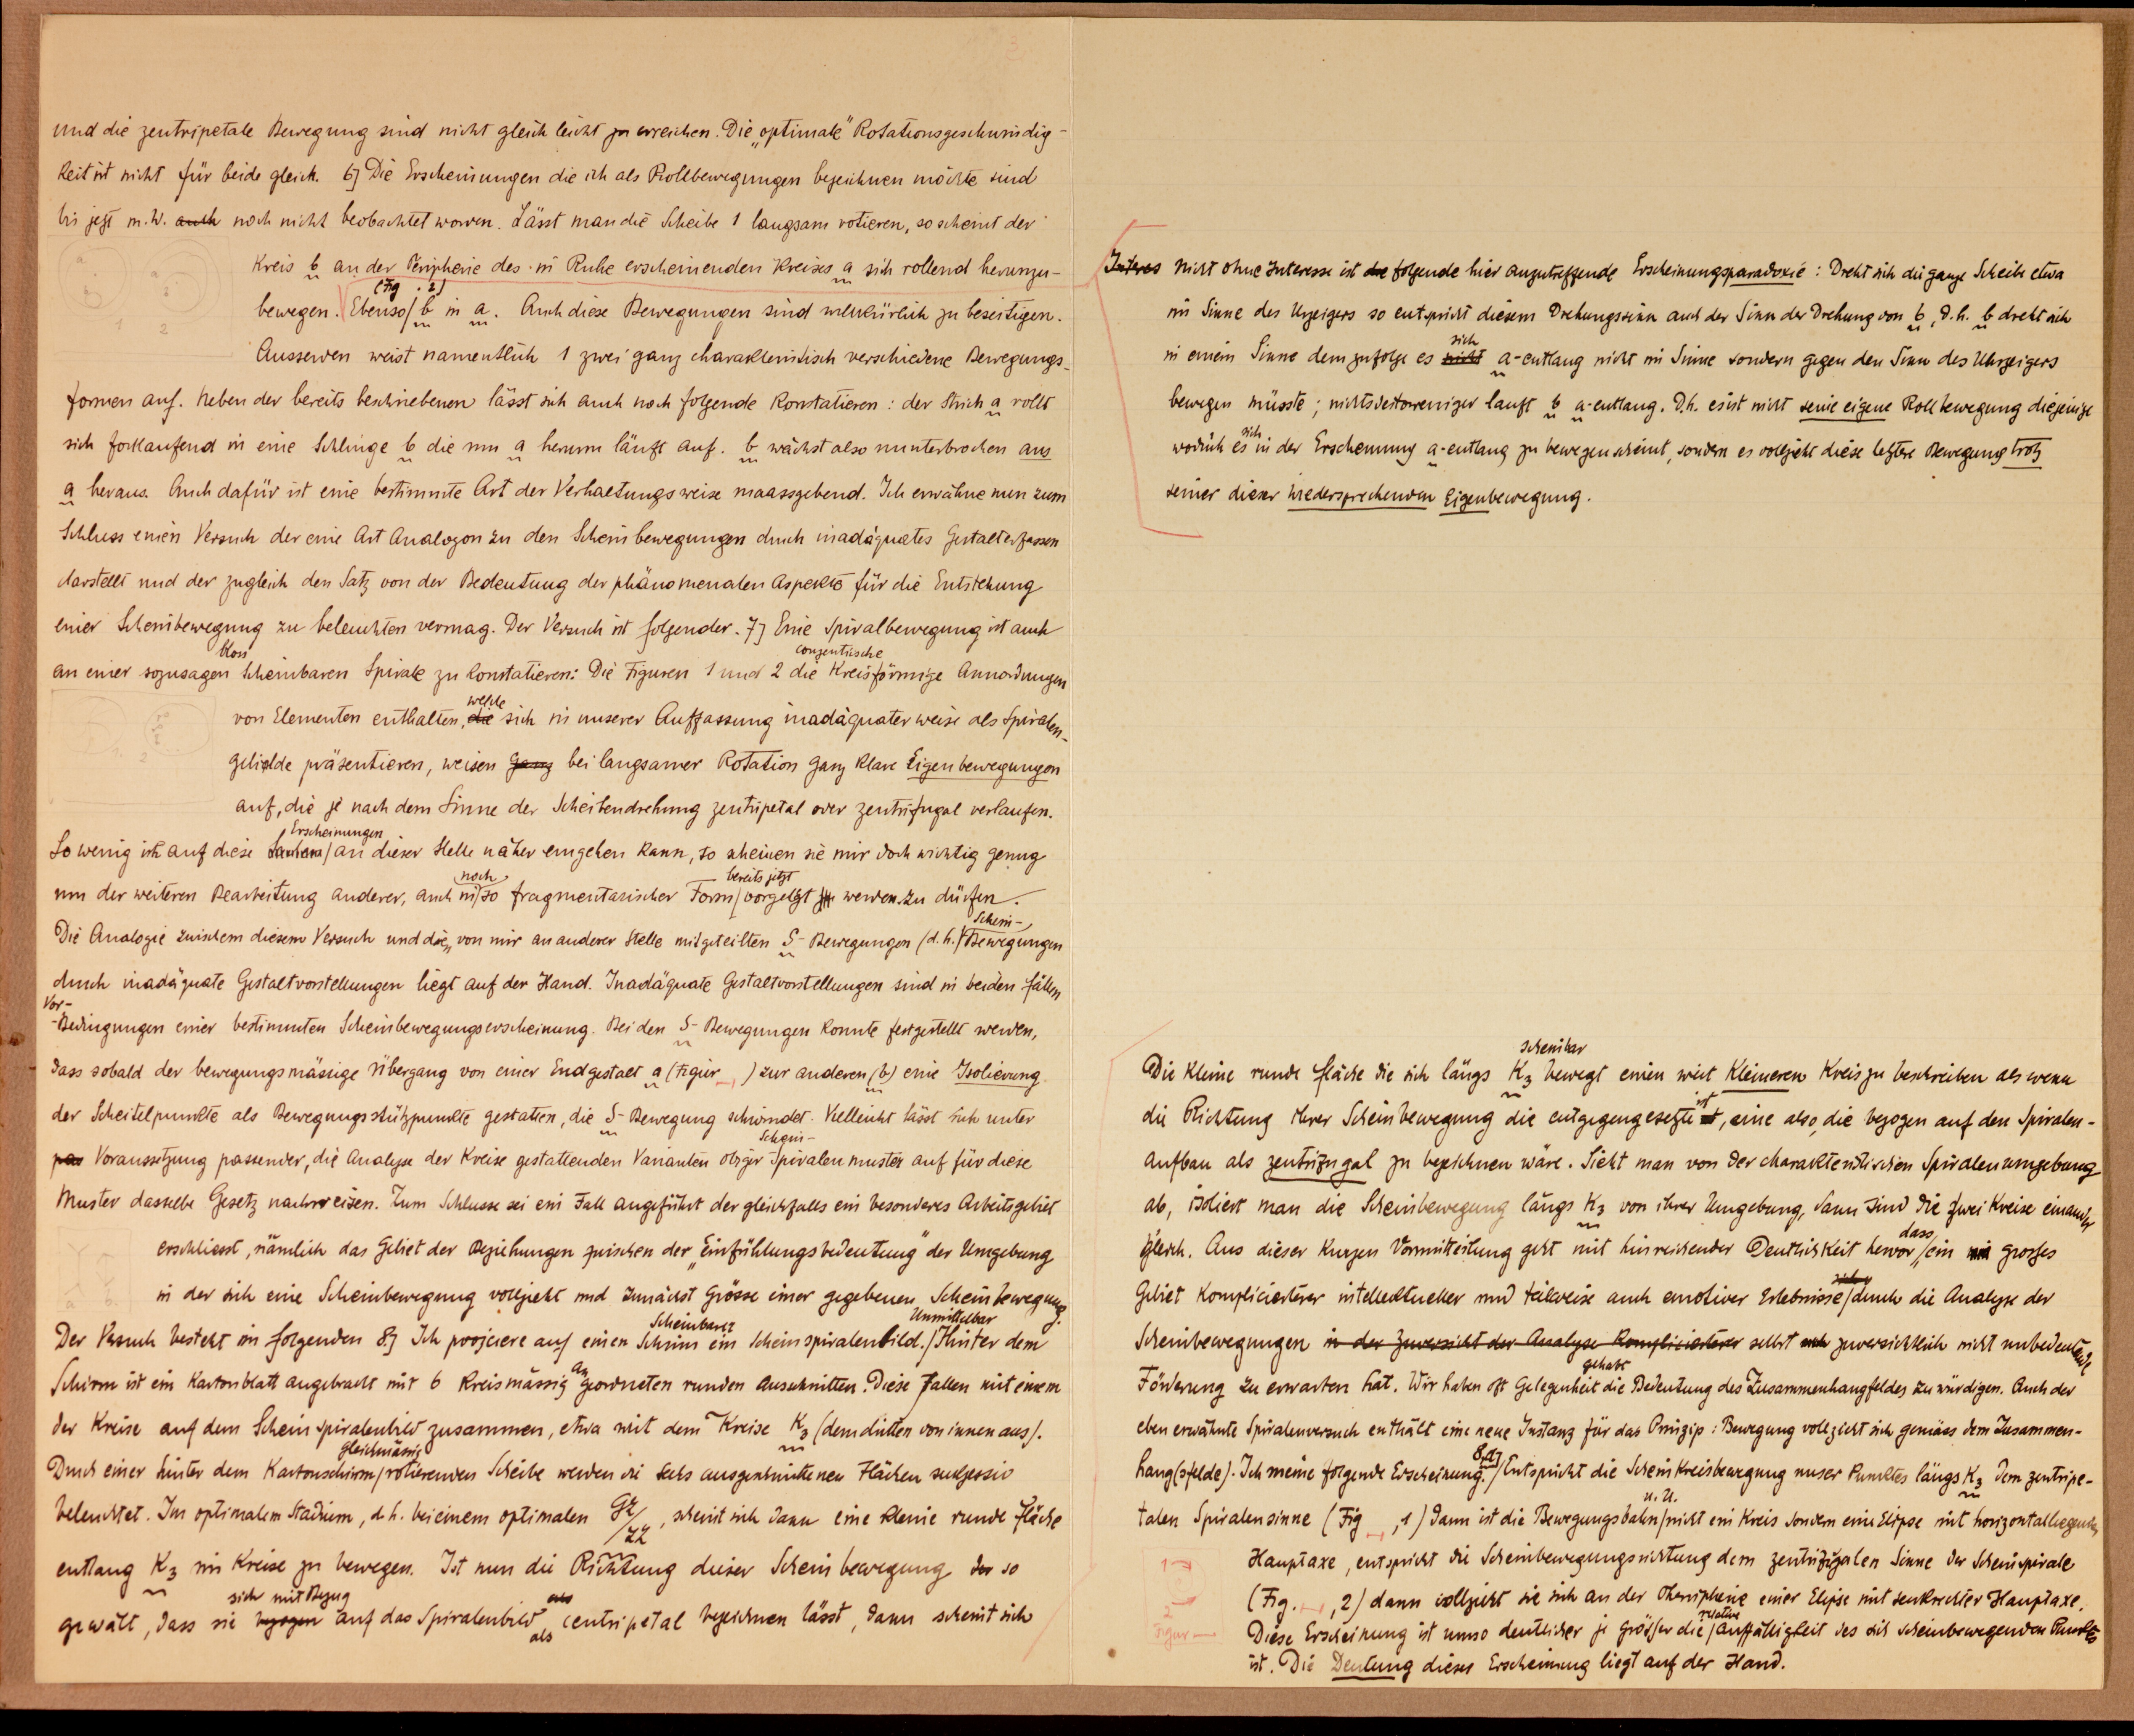 und die zentripetale Bewegung sind nicht gleich leicht zu erreichen. Die „optimale" Rotationsgeschwindig-
keit ist nicht für beide gleich. 6] Die Erscheinungen die ich als Rollbewegungen bezeichnen möchte sind
bis jetzt m.W. auch noch nicht beobachtet worden. Lässt man die Scheibe 1 langsam rotieren, so scheint der
Kreis b an der Peripherie des in Ruhe erscheinenden Kreises a sich rollend herumzu-
bewegen. Ebenso (Fig. 2) b in a. Auch diese Bewegungen sind willkürlich zu beseitigen.
1 2
Ausserden weist namentlich 1 zwei ganz charakteristisch verschiedene Bewegungs-
formen auf. Neben der bereits beschriebenen lässt sich auch noch folgende konstatieren: der Strich a rollt
sich fortlaufend in eine Schlinge b die um a herum läuft auf. b wächst also ununterbrochen aus
a heraus. Auch dafür ist eine bestimmte Art der Verhaltungsweise maassgebend. Ich erwähne nun zum
Schluss einen Versuch der eine Art Analogon zu den Scheinbewegungen durch inadäquates Gestalterfassen
darstellt und der zugleich den Satz von der Bedeutung der phänomenalen Aspekte für die Entstehung
einer Scheinbewegung zu beleuchten vermag. Der Versuch ist folgender. 7] Eine Spiralbewegung ist auch
an einer sozusagen blos scheinbaren Spirale zu konstatieren: Die Figuren 1 und 2 die conzentrische kreisförmige Anordnungen
von Elementen enthalten, die welche sich in unserer Auffassung inadäquater weise als Spiralen-
gebilde präsentieren, weisen ganz bei langsamer Rotation ganz klare Eigenbewegungen
auf, die je nach dem Sinne der Scheibendrehung zentripetal oder zentrifugal verlaufen.
So wenig ich auf diese Erscheinungen an dieser Stelle näher eingehen kann, so scheinen sie mir doch wichtig genug
um der weiteren Bearbeitung anderer, auch in noch so fragmentarischer Form bereits jetzt vorgelegt zu werden zu dürfen.
Die Analogie zwischem diesem Versuch und die, von mir an anderer Stelle mitgeteilten S-Bewegungen (d.h. Schein-Bewegungen
durch inadäquate Gestaltvorstellungen liegt auf der Hand. Inadäquate Gestaltvorstellungen sind in beiden Fällen
Vor-Bedingungen einer bestimmten Scheinbewegungserscheinung. Bei den S-Bewegungen konnte festgestellt werden,
dass sobald der bewegungsmässige Übergang von einer Endgestalt a (Figur ) zur anderen (b) eine Isolierung
der Scheitelpunkte als Bewegungsstützpunkte gestatten, die S-Bewegung schwindet. Vielleicht lässt sich unter
pas Voraussetzung passender, die Analyse der Kreise gestattenden Varianten obiger Schein-Spiralenmuster auf für diese
Muster dasselbe Gesetz nachweisen. Zum Schlusse sei ein Fall angeführt der gleichfalls ein besonderes Arbeitsgebiet
erschliesst, nämlich das Gebiet der Beziehungen zwischen der „Einfühlungsbedeutung" der Umgebung
in der sich eine Scheinbewegung vollzieht und zunächst Grösse einer gegebenen Scheinbewegung.
Der Versuch besteht in folgenden 8.] Ich projciere auf einen Schirm ein scheinbarer Scheinspiralenbild. Unmittelbar Hinter dem
Schirm ist ein Kartonblatt angebracht mit 6 kreismässig angeordneten runden Ausschnitten. Diese fallen mit einem
der Kreise auf dem Scheinspiralenbild zusammen, etwa mit dem Kreise K3 (dem dritten von innen aus).
Durch einer hinter dem Kartonschirm gleichmässig rotierenden Scheibe werden die sechs ausgeschnittenen Flächen sukzessiv
beleuchtet. Im optimalem Stadium, d.h. bei einem optimalen gz/zz, scheint sich dann eine kleine runde Fläche
entlang K3 im Kreise zu bewegen. Ist nun die Richtung dieser Scheinbewegung so
gewält, dass sie bezogen sich mit Bezug auf das Spiralenbild als centripetal bezeichnen lässt, dann scheint sich
Intres Nicht ohne Interesse ist die folgende hier anzutreffende Erscheinungsparadoxie: Dreht sich die ganze Scheibe etwa
im Sinne des Uhrzeigers so entspricht diesem Drehungssinn auch der Sinn der Drehung von b, d.h. b dreht sich
in einem Sinne demzufolge es nicht sich a-entlang nicht im Sinne sondern gegen den Sinn des Uhrzeigers
bewegen müsste; nichtsdestoweniger lauft b a-entlang. D.h. es ist nicht seine eigene Rollbewegung diejenige
wodurch es sich in der Erscheinung a-entlang zu bewegen scheint, sondern es vollzieht diese letztere Bewegung trotz
seiner dieser wiedersprechenden Eigenbewegung.
Die kleine runde Fläche die sich längs K3 bewegt scheinbar einen weit kleineren Kreis zu beschreiben als wenn
die Richtung ihrer Scheinbewegung die entgegengesetzte ist, eine also, die bezogen auf den Spiralen-
aufbau als zentrifugal zu bezeichnen wäre. Sieht man von der charakteristischen Spiralenumgebung
ab, isoliert man die Scheinbewegung längs K3 von ihrer Umgebung, dann sind die zwei Kreise einander
gleich. Aus dieser kurzen Vormitteilung geht mit hinreichender Deutlichkeit hervor, dass ein grosses
Gebiet komplicierterer intellektueller und teilweise auch emotiver Erlebnisse durch die Analyse der
Scheinbewegungen in der Zuversicht der Analyse komplicierterer selbst zuversichtlich nicht unbedeutende
Förderung zu erwarten hat. Wir haben oft Gelegenheit gehabt die Bedeutung des Zusammenhangfeldes zu würdigen. Auch der
eben erwähnte Spiralenversuch enthält eine neue Instanz für das Prinzip: Bewegung vollzieht sich gemäss dem Zusammen-
hang(sfelde). Ich meine folgende Erscheinung. 8a] Entspricht die Scheinkreisbewegung unser Punktes längs K3 dem zentripe-
talen Spiralensinne (Fig , 1) dann ist die Bewegungsbahn u.U. nicht ein Kreis sondern eine Elipse mit horizontalliegender
Hauptaxe, entspricht die Scheinbewegungsrichtung dem zentrifugalen Sinne der Scheinspirale
(Fig. , 2) dann vollzieht sie sich an der Peripherie einer Elipse mit senkrechter Hauptaxe.
Diese Erscheinung ist umso deutlicher je grösser die relative Auffälligkeit des sich scheinbewegenden Punktes
ist. Die Deutung dieser Erscheinung liegt auf der Hand.
1
2
Figur